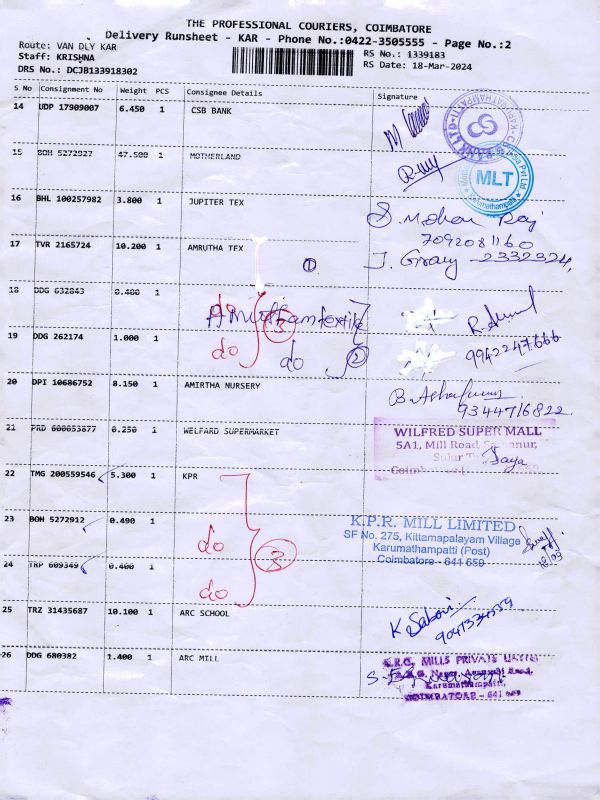 THE PROFESSIONAL COURIERS, COIMBATORE
Delivery Runsheet - KAR - Phone No.:0422-3505555 - Page No.:2
Route: VAN DLY KAR
RS No.: 1339183
Staff: KRISHNA
RS Date: 18-Mar-2024
DRS No.: DCJB133918302
S No Consignment No Weight PCS Consignee Details Signature
14 UDP 17909007 6.450 1 CSB BANK
15 BOH 5272927 47.500 1 MOTHERLAND
MLT
16 BHL 100257982 3.800 1 JUPITER TEX
S. Mohan Raj
7092081160
17 TVR 2165724 10.200 1 AMRUTHA TEX
1
2332324
18 DDG 632843 8.400 1
do Amirtham textile
3
19 DDG 262174 1.000 1
do do 2
9942247666
20 DPI 10686752 8.150 1 AMIRTHA NURSERY
9344716822
21 PRD 600653877 6.250 1 WELFARD SUPERMARKET
WILFRED SUPER MALL
5A1, Mill Road,
Jaya
22 TMG 200559546 5.300 1 KPR
23 BOH 5272912 0.490 1
do 3
K.P.R. MILL LIMITED
SF No. 275, Kittamapalayam Village
Karumathampatti (Post)
Coimbatore - 641 659
18/03
24 TRP 609349 0.400 1
do
25 TRZ 31435687 10.100 1 ARC SCHOOL
26 DDG 680382 1.400 1 ARC MILL
MILLS PRIVATE LIMITED
Karumathampatti,
COIMBATORE - 641 659